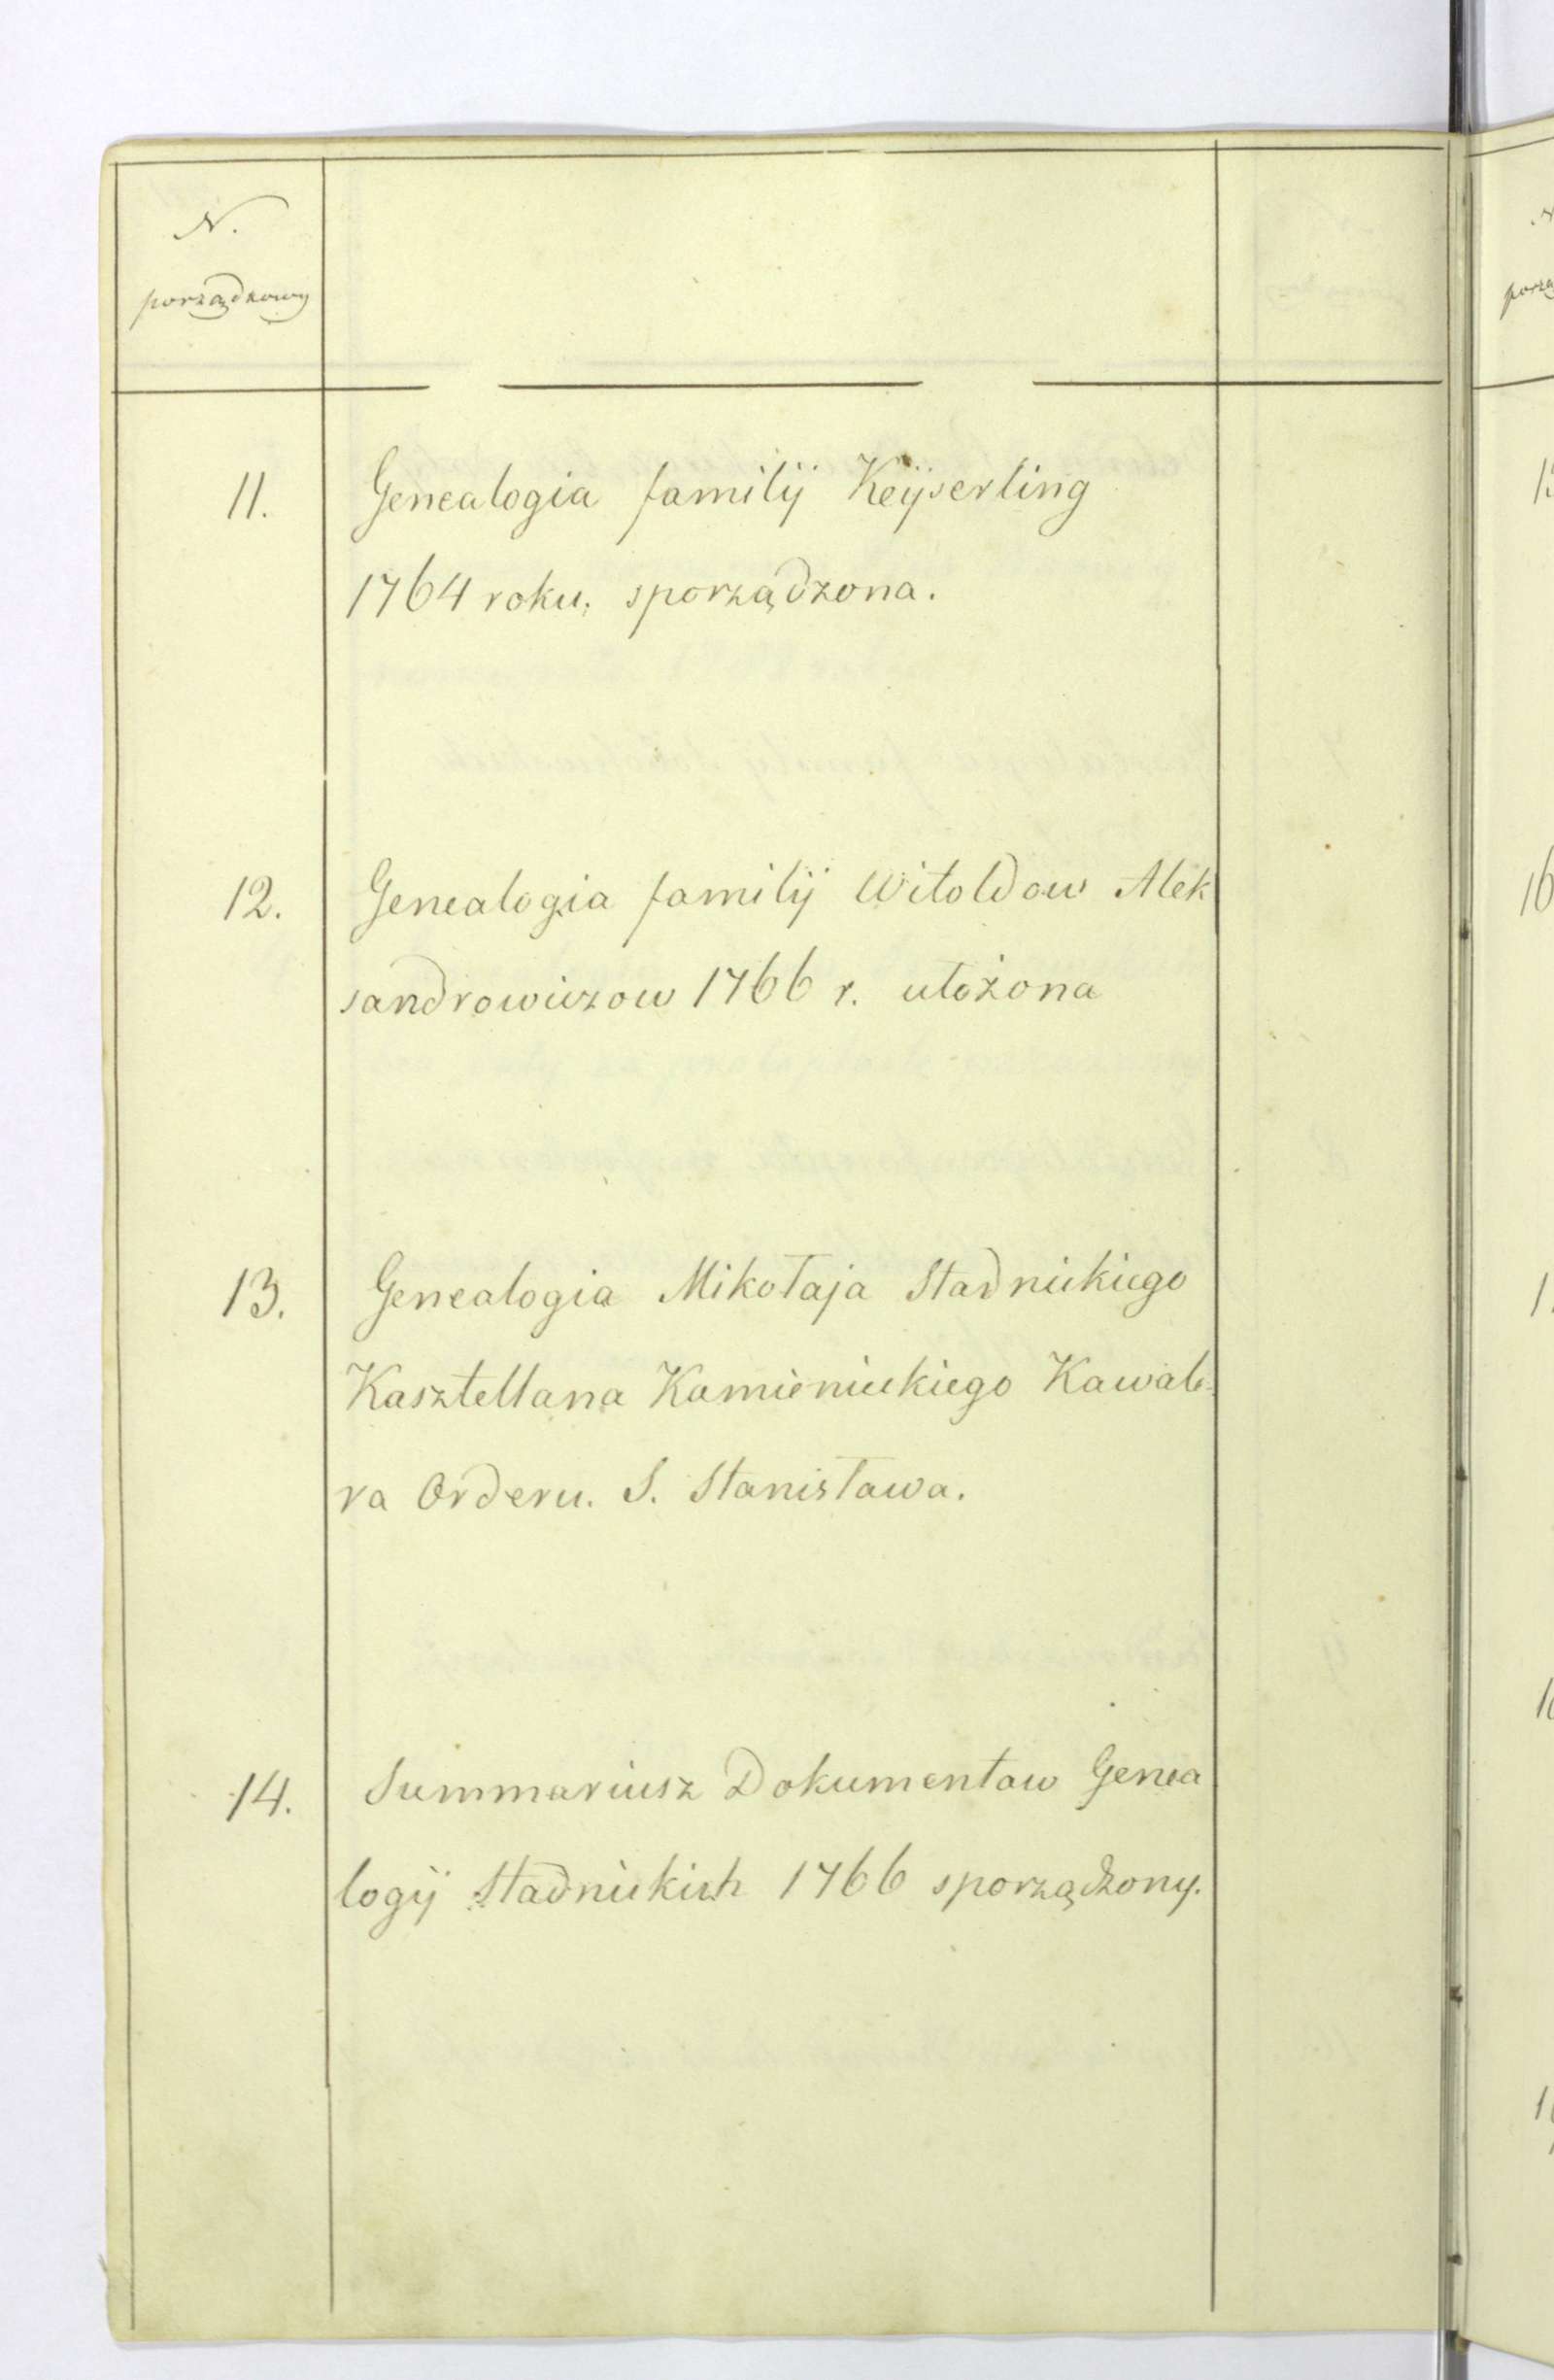 N.
porządkowy
11. Genealogia familij Keijserling
1764 roku, sporządzona.
12. Genealogia familij Witoldow Alek
sandrowiczow 1766 r. ułożona
13. Genealogia Mikołaja Stadnickiego
Kasztellana Kamienickiego Kawale-
ra Orderu. S. Stanisława.
14. Summariusz Dokumentow Genea
logij Stadnickich 1766 sporządzony.